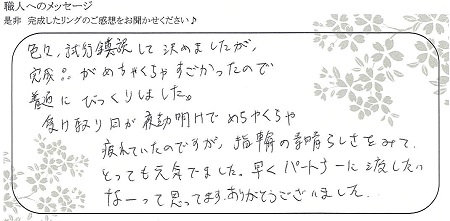 職人へのメッセージ
是非 完成したリングのご感想をお聞かせください♪
色々、試行錯誤して決めましたが、
完成品がめちゃくちゃすごかったので
普通にびっくりしました。
受け取り日が夜勤明けでめちゃくちゃ
疲れていたのですが、指輪の素晴らしさをみて、
とっても元気でました。早くパートナーに渡したい
なーって思ってます。ありがとうございました。